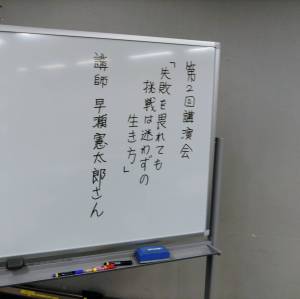 第2回講演会
「失敗を畏れても
挑戦は迷わずの
生き方」
講師 早瀬憲太郎さん